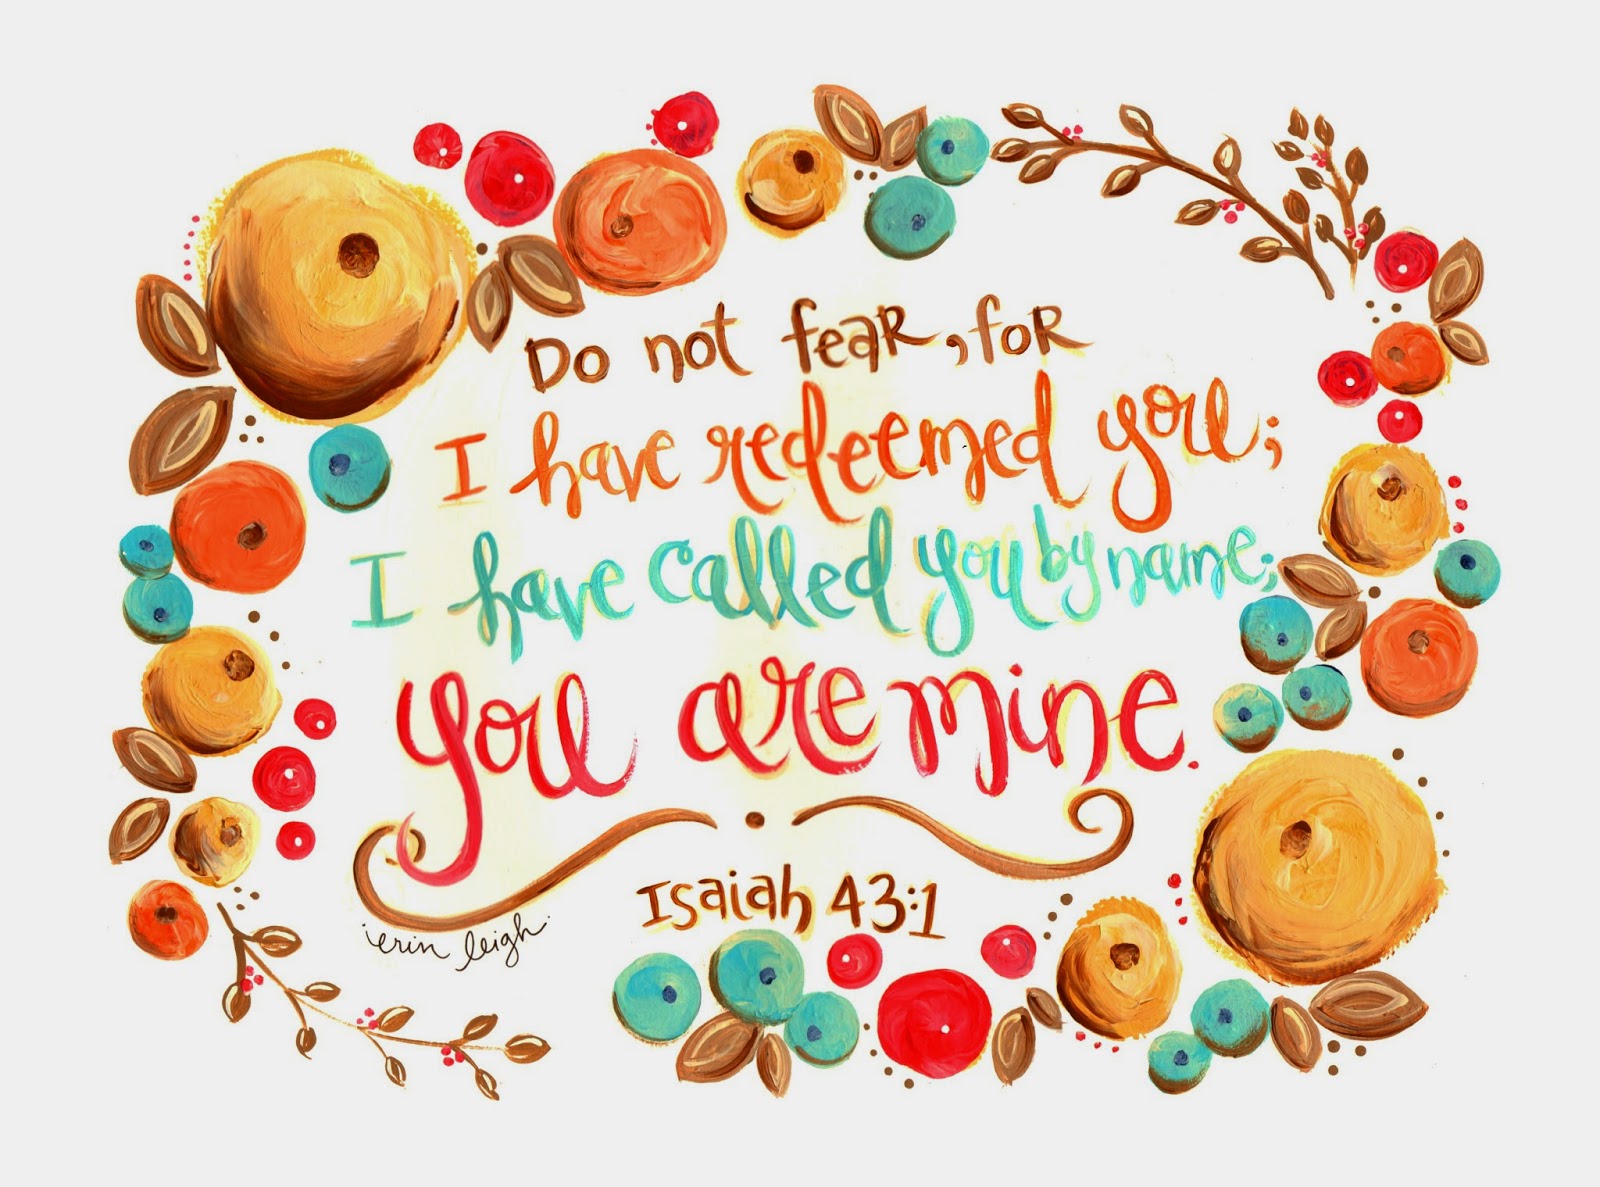 Do not fear, for
I have redeemed you;
I have called you by name;
you are mine.
Isaiah 43:1
erin leigh